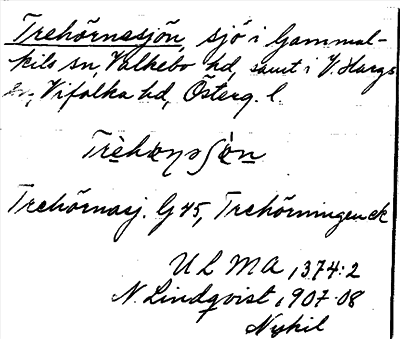 Trehörnasjön, sjö i Gammal-
kils sn, Valkebo hd, samt i V. Hargs
sn, Vifolka hd, Österg. l.
Trehörnasj. G 45, Trehörningen ek
ULMA, 1374:2
N. Lindqvist, 1907-08
Nykil